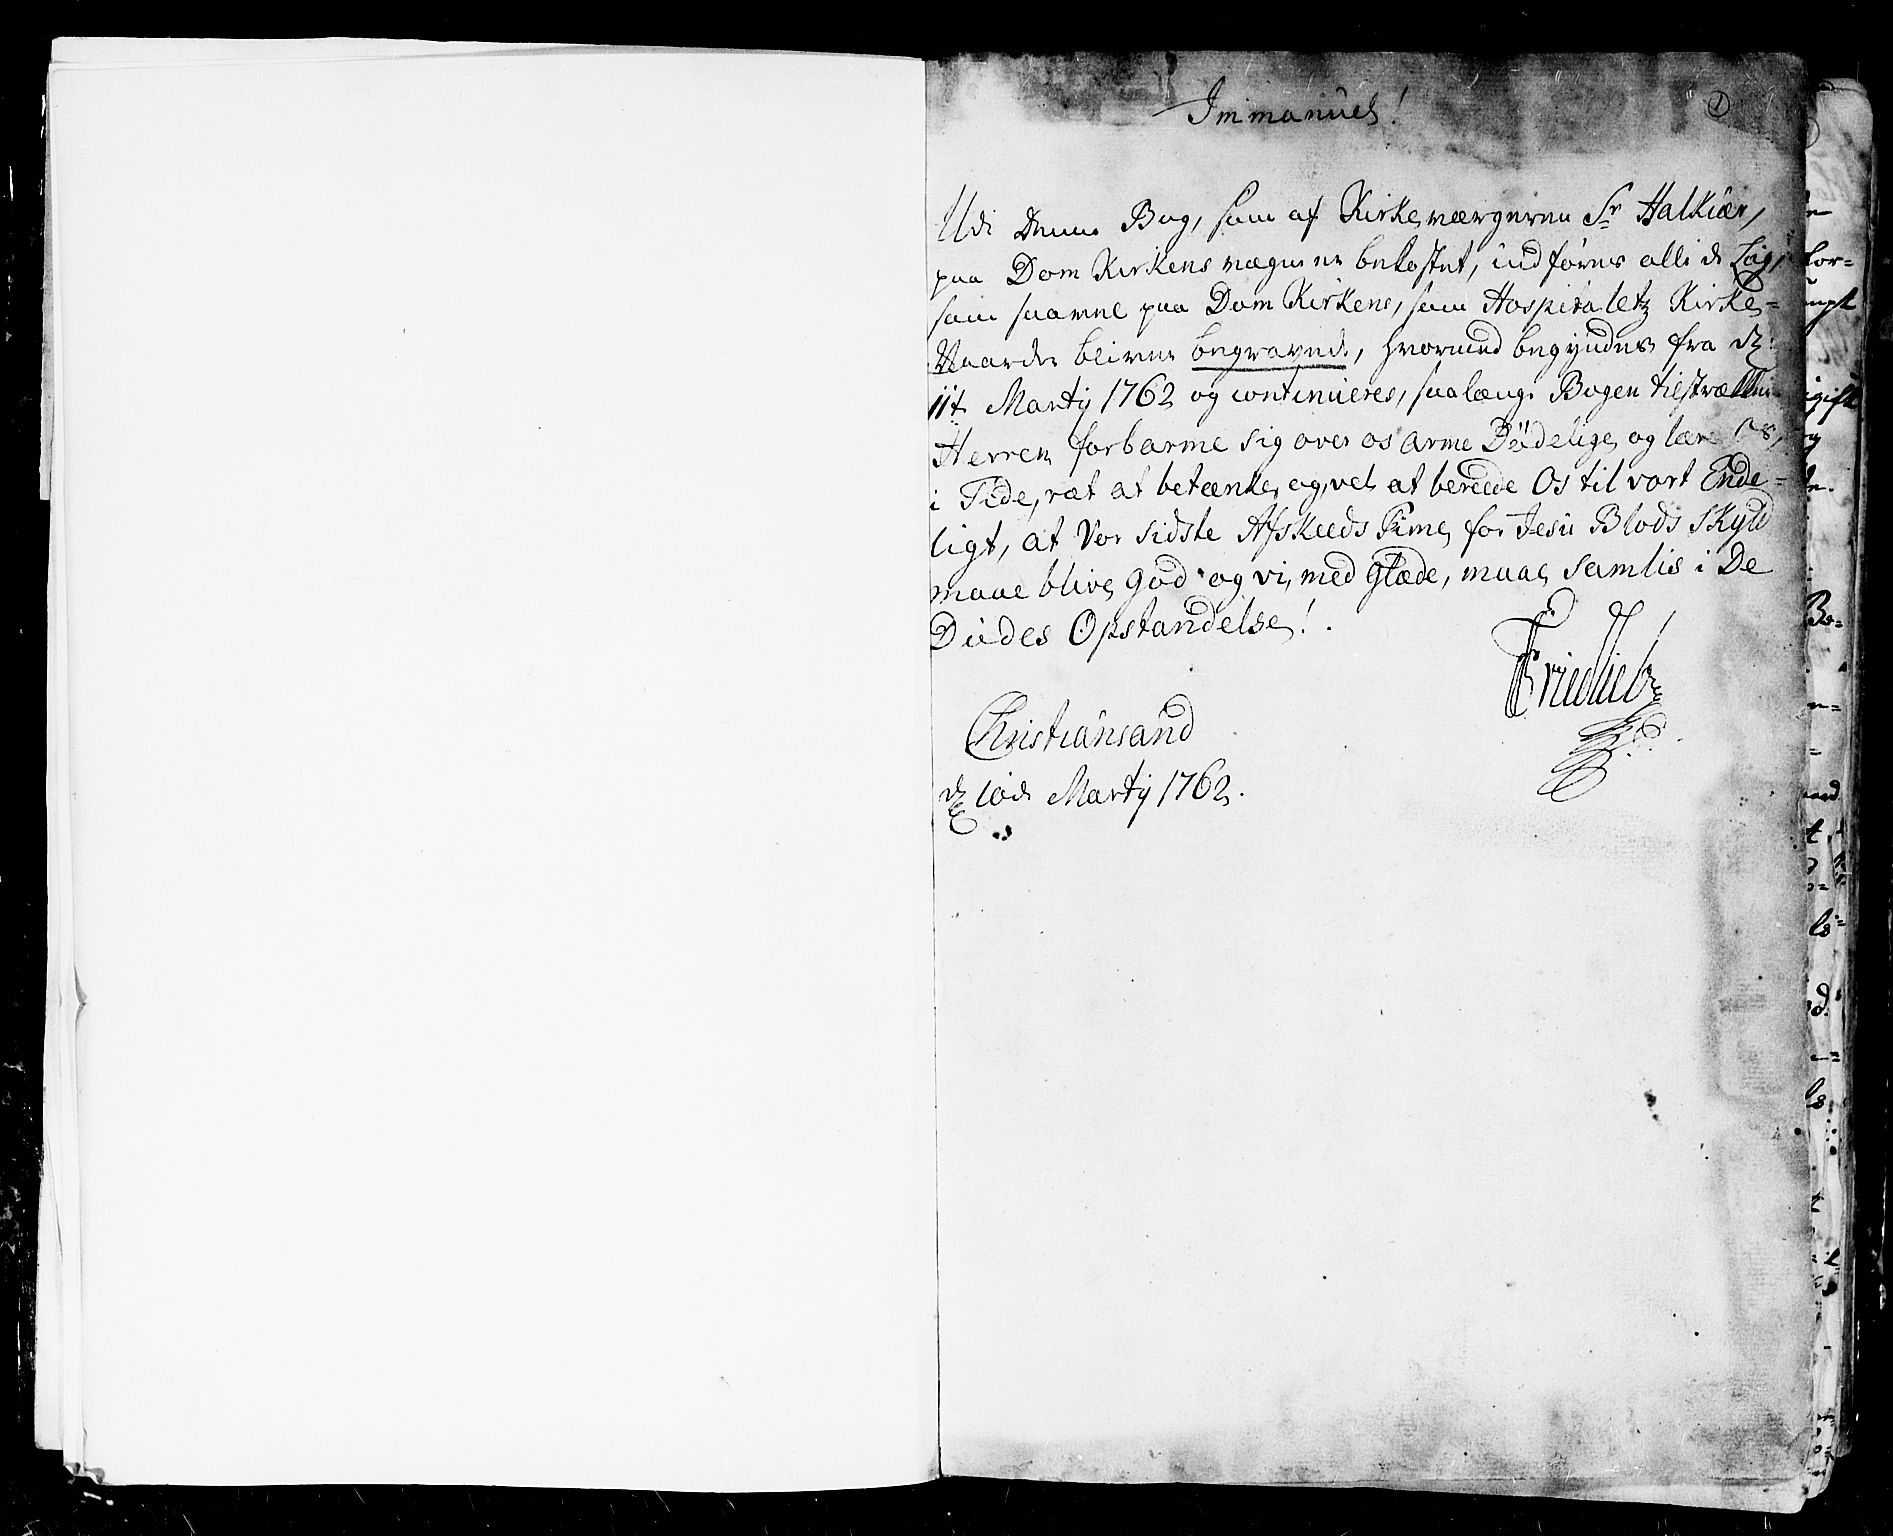 Immanuel!
1
Udi denne Bog, som af Kirkeværgeren Sr Halkiær,
paa Dom Kirkens vægne er bekostet, indføres alle de Liig,
som saavel paa Dom Kirkens, som Hospitaletz Kirke=
Gaarder bliver begravede, hvormed begyndes fra d:
11te Martij 1762 og continueres, saalænge Bogen tilstrækker.
Herren forbarme sig over os arme Dödelige og lære os,
i Tide, ræt at betænke og vel at bereede Os til vort Ende=
ligt, at Vor sidste Afskeeds Time for Jesu Blods Skyld
maae blive God og vi med Glæde, maae Samlis i De
Dödes Opstandelse!
Friedlieb
Christiansand
d 10de Martij 1762.